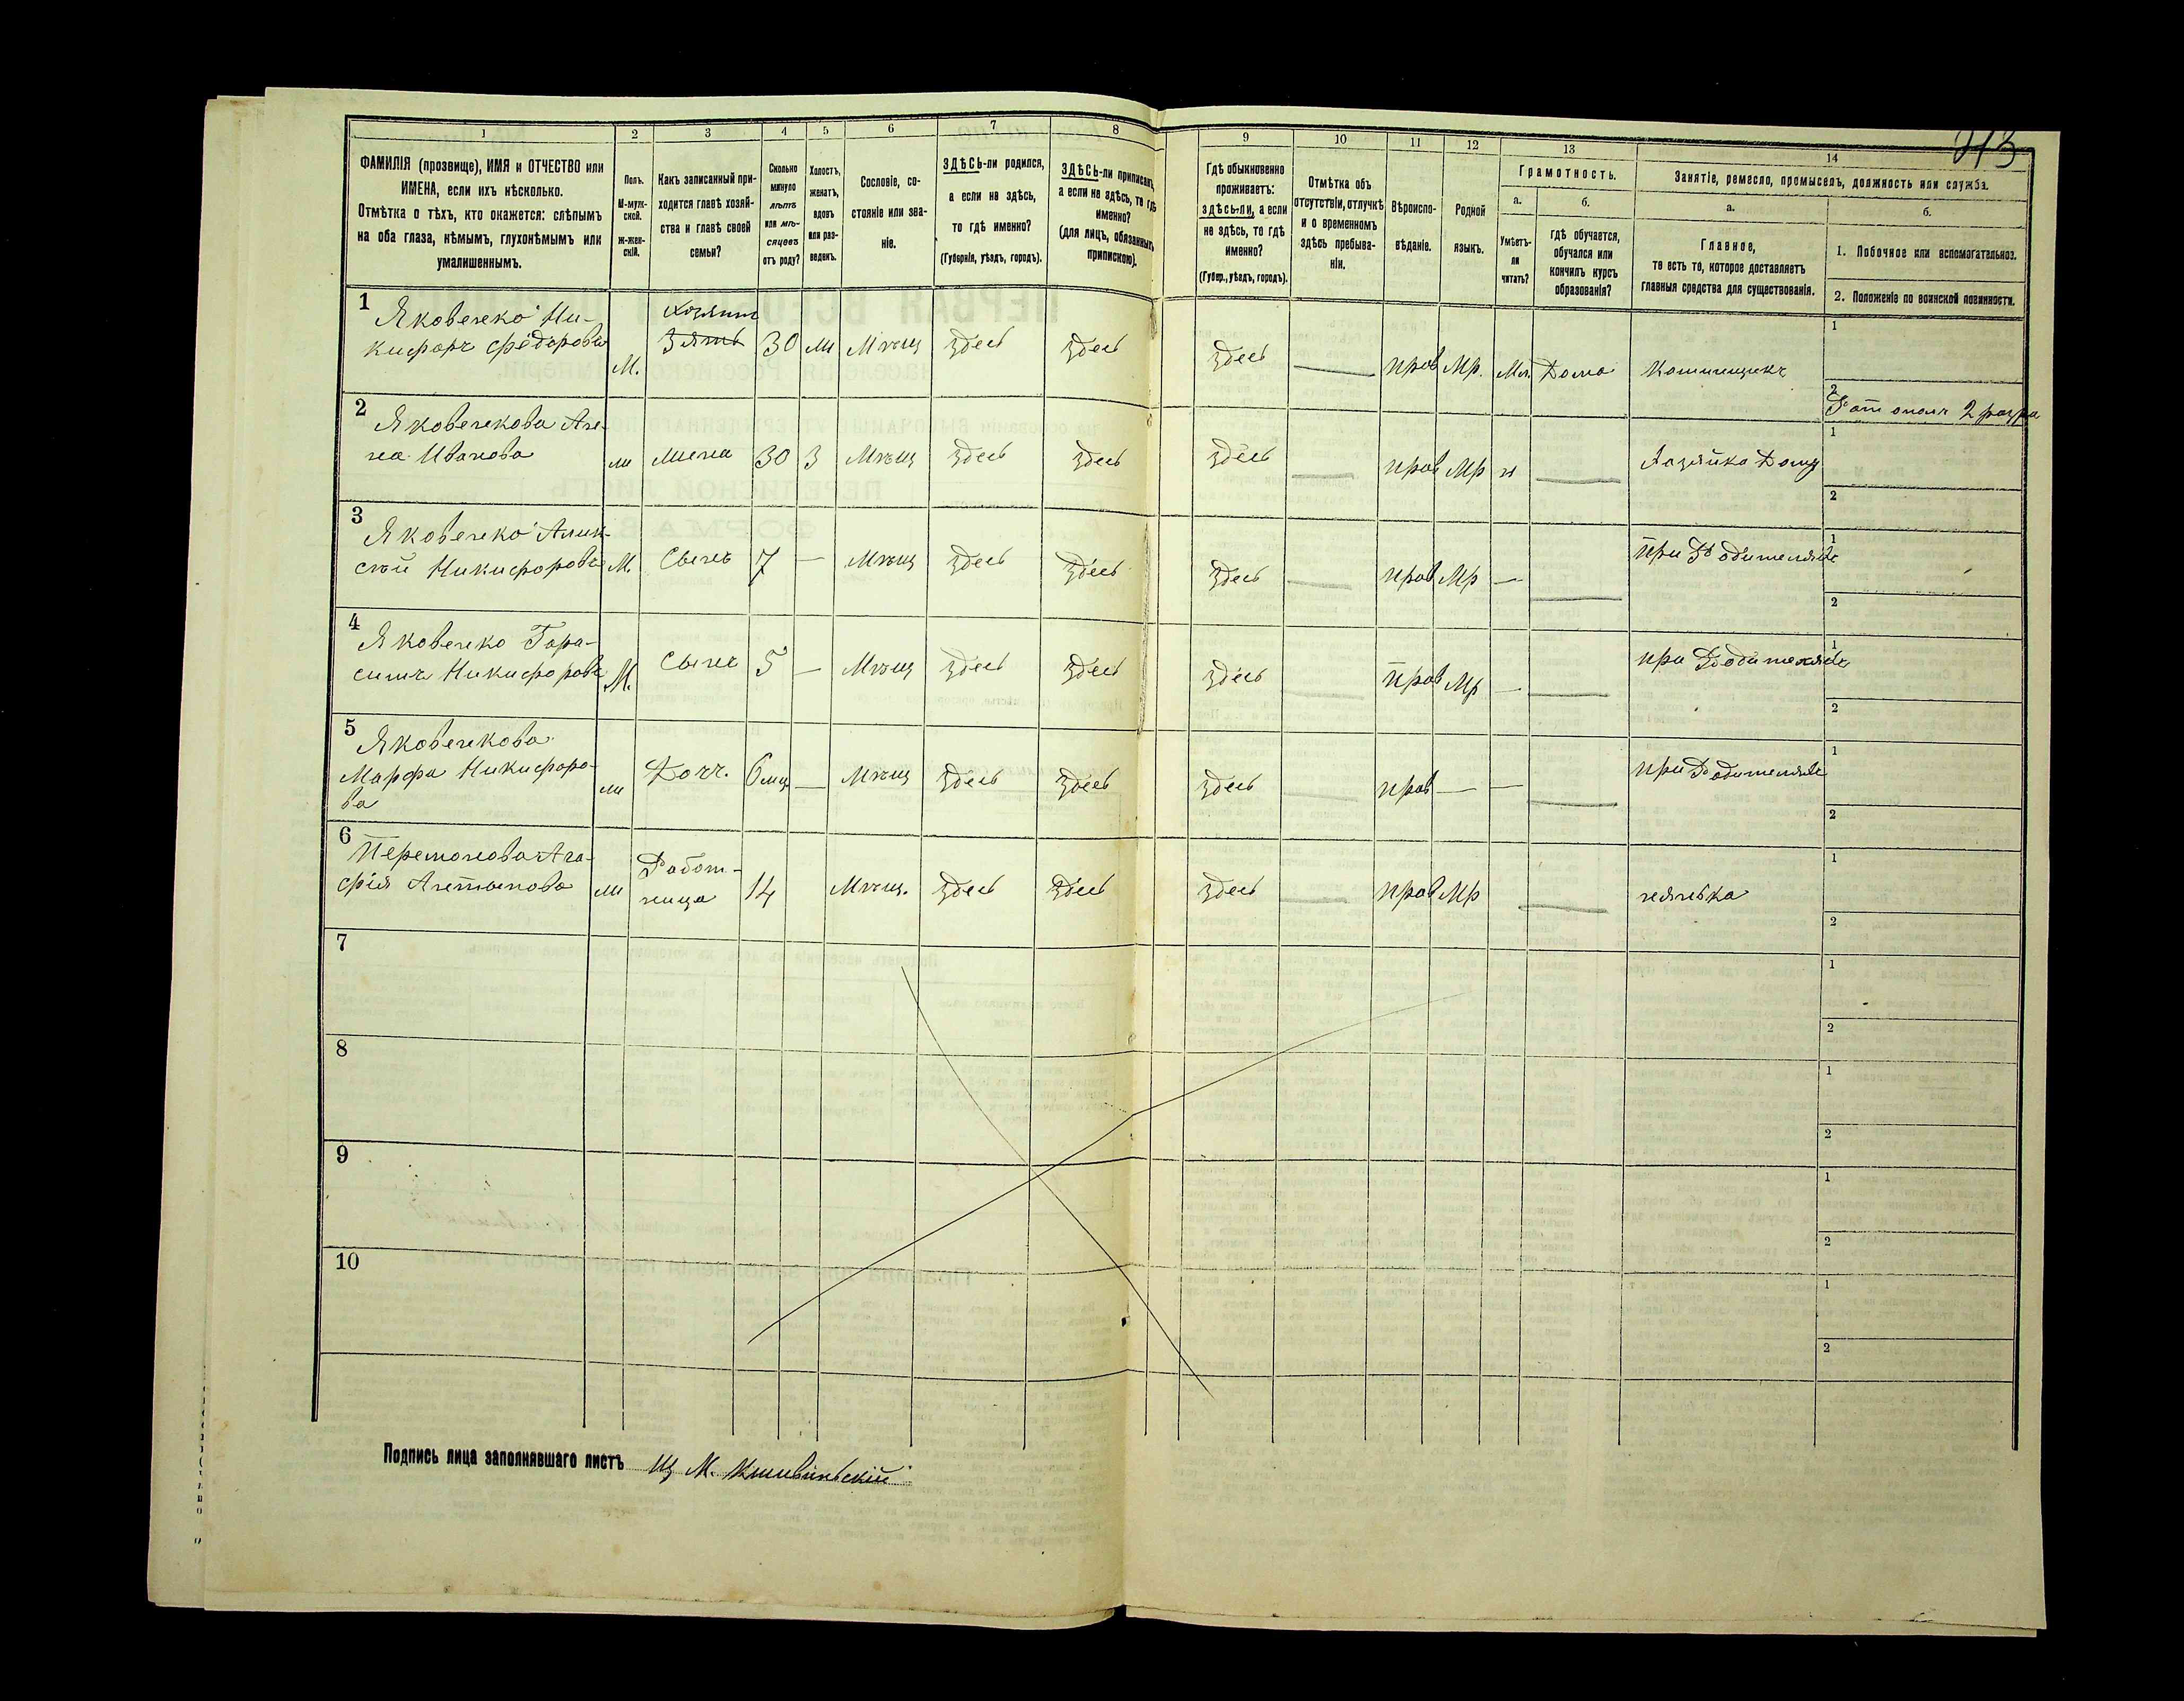 213
1 2 3 4 5 6 7 8 9 10 11 12 13 14
ФАМИЛІЯ (прозвище), ИМЯ и ОТЧЕСТВО или
ИМЕНА, если ихъ нѣсколько.
Отмѣтка о тѣхъ, кто окажется: слѣпымъ
на оба глаза, нѣмымъ, глухонѣмымъ или
умалишеннымъ.
Полъ.
М-муж-
ской.
Ж-жен-
скій.
Какъ записанный при-
ходится главѣ хозяй-
ства и главѣ своей
семьи?
Сколько
минуло
лѣтъ
или мѣ-
сяцевъ
отъ роду?
Холостъ,
женатъ,
вдовъ
или раз-
веденъ.
Сословіе, со-
стояніе или зва-
ніе.
ЗДѢСЬ-ли родился,
а если не здѣсь,
то гдѣ именно?
(Губернія, уѣздъ, городъ).
ЗДѢСЬ-ли приписанъ,
а если не здѣсь, то гдѣ
именно?
(для лицъ, обязанныхъ
припискою).
Гдѣ обыкновенно
проживаетъ:
здѣсь-ли, а если
не здѣсь, то гдѣ
именно?
(Губер., уѣздъ, городъ).
Отмѣтка объ
отсутствіи, отлучкѣ
и о временномъ
здѣсь пребыва-
ніи.
Вѣроиспо-
вѣданіе.
Родной
языкъ.
Грамотность.
а.
Умѣетъ-
ли
читать?
б.
гдѣ обучается,
обучался или
кончилъ курсъ
образованія?
Занятіе, ремесло, промыселъ, должность или служба.
а.
Главное,
то есть то, которое доставляетъ
главныя средства для существованія.
б.
1. Побочное или вспомогательное.
2. Положеніе по воинской повинности.
1 Яковенко Ни-
кифоръ Федоровъ
М.
хозяинъ
Зять
30 ж Мѣщ здесь здесь здесь — прав Мр. Дома
1
2 Рат опол 2 разра
2 Яковенкова Ан-
на Иванова
ж жена 30 З Мѣщ здесь здесь здесь — прав Мр н — Хозяйка Дому
1
2
3 Яковенко Алек-
сѣй Никифоровъ М. Сынъ 7 — Мѣщ здесь здесь здесь — прав Мр — — при Родителяхъ
1
2
4 Яковенко Гара-
симъ Никифоровъ М. Сынъ 5 — Мѣщ здесь здесь здесь — прав Мр — — при Родителяхъ
1
2
5 Яковенкова
Марфа Никифоро-
ва
ж Доч. 6 мц — Мѣщ здесь здесь здесь — прав — — — при Родителяхъ
1
2
6 Ага-
фія Антонова ж Работ-
ница 14 Мѣщ. здесь здесь здесь — прав Мр — нянька
1
2
7
1
2
8
1
2
9
1
2
10
1
2
Подпись лица заполнявшаго листъ М.